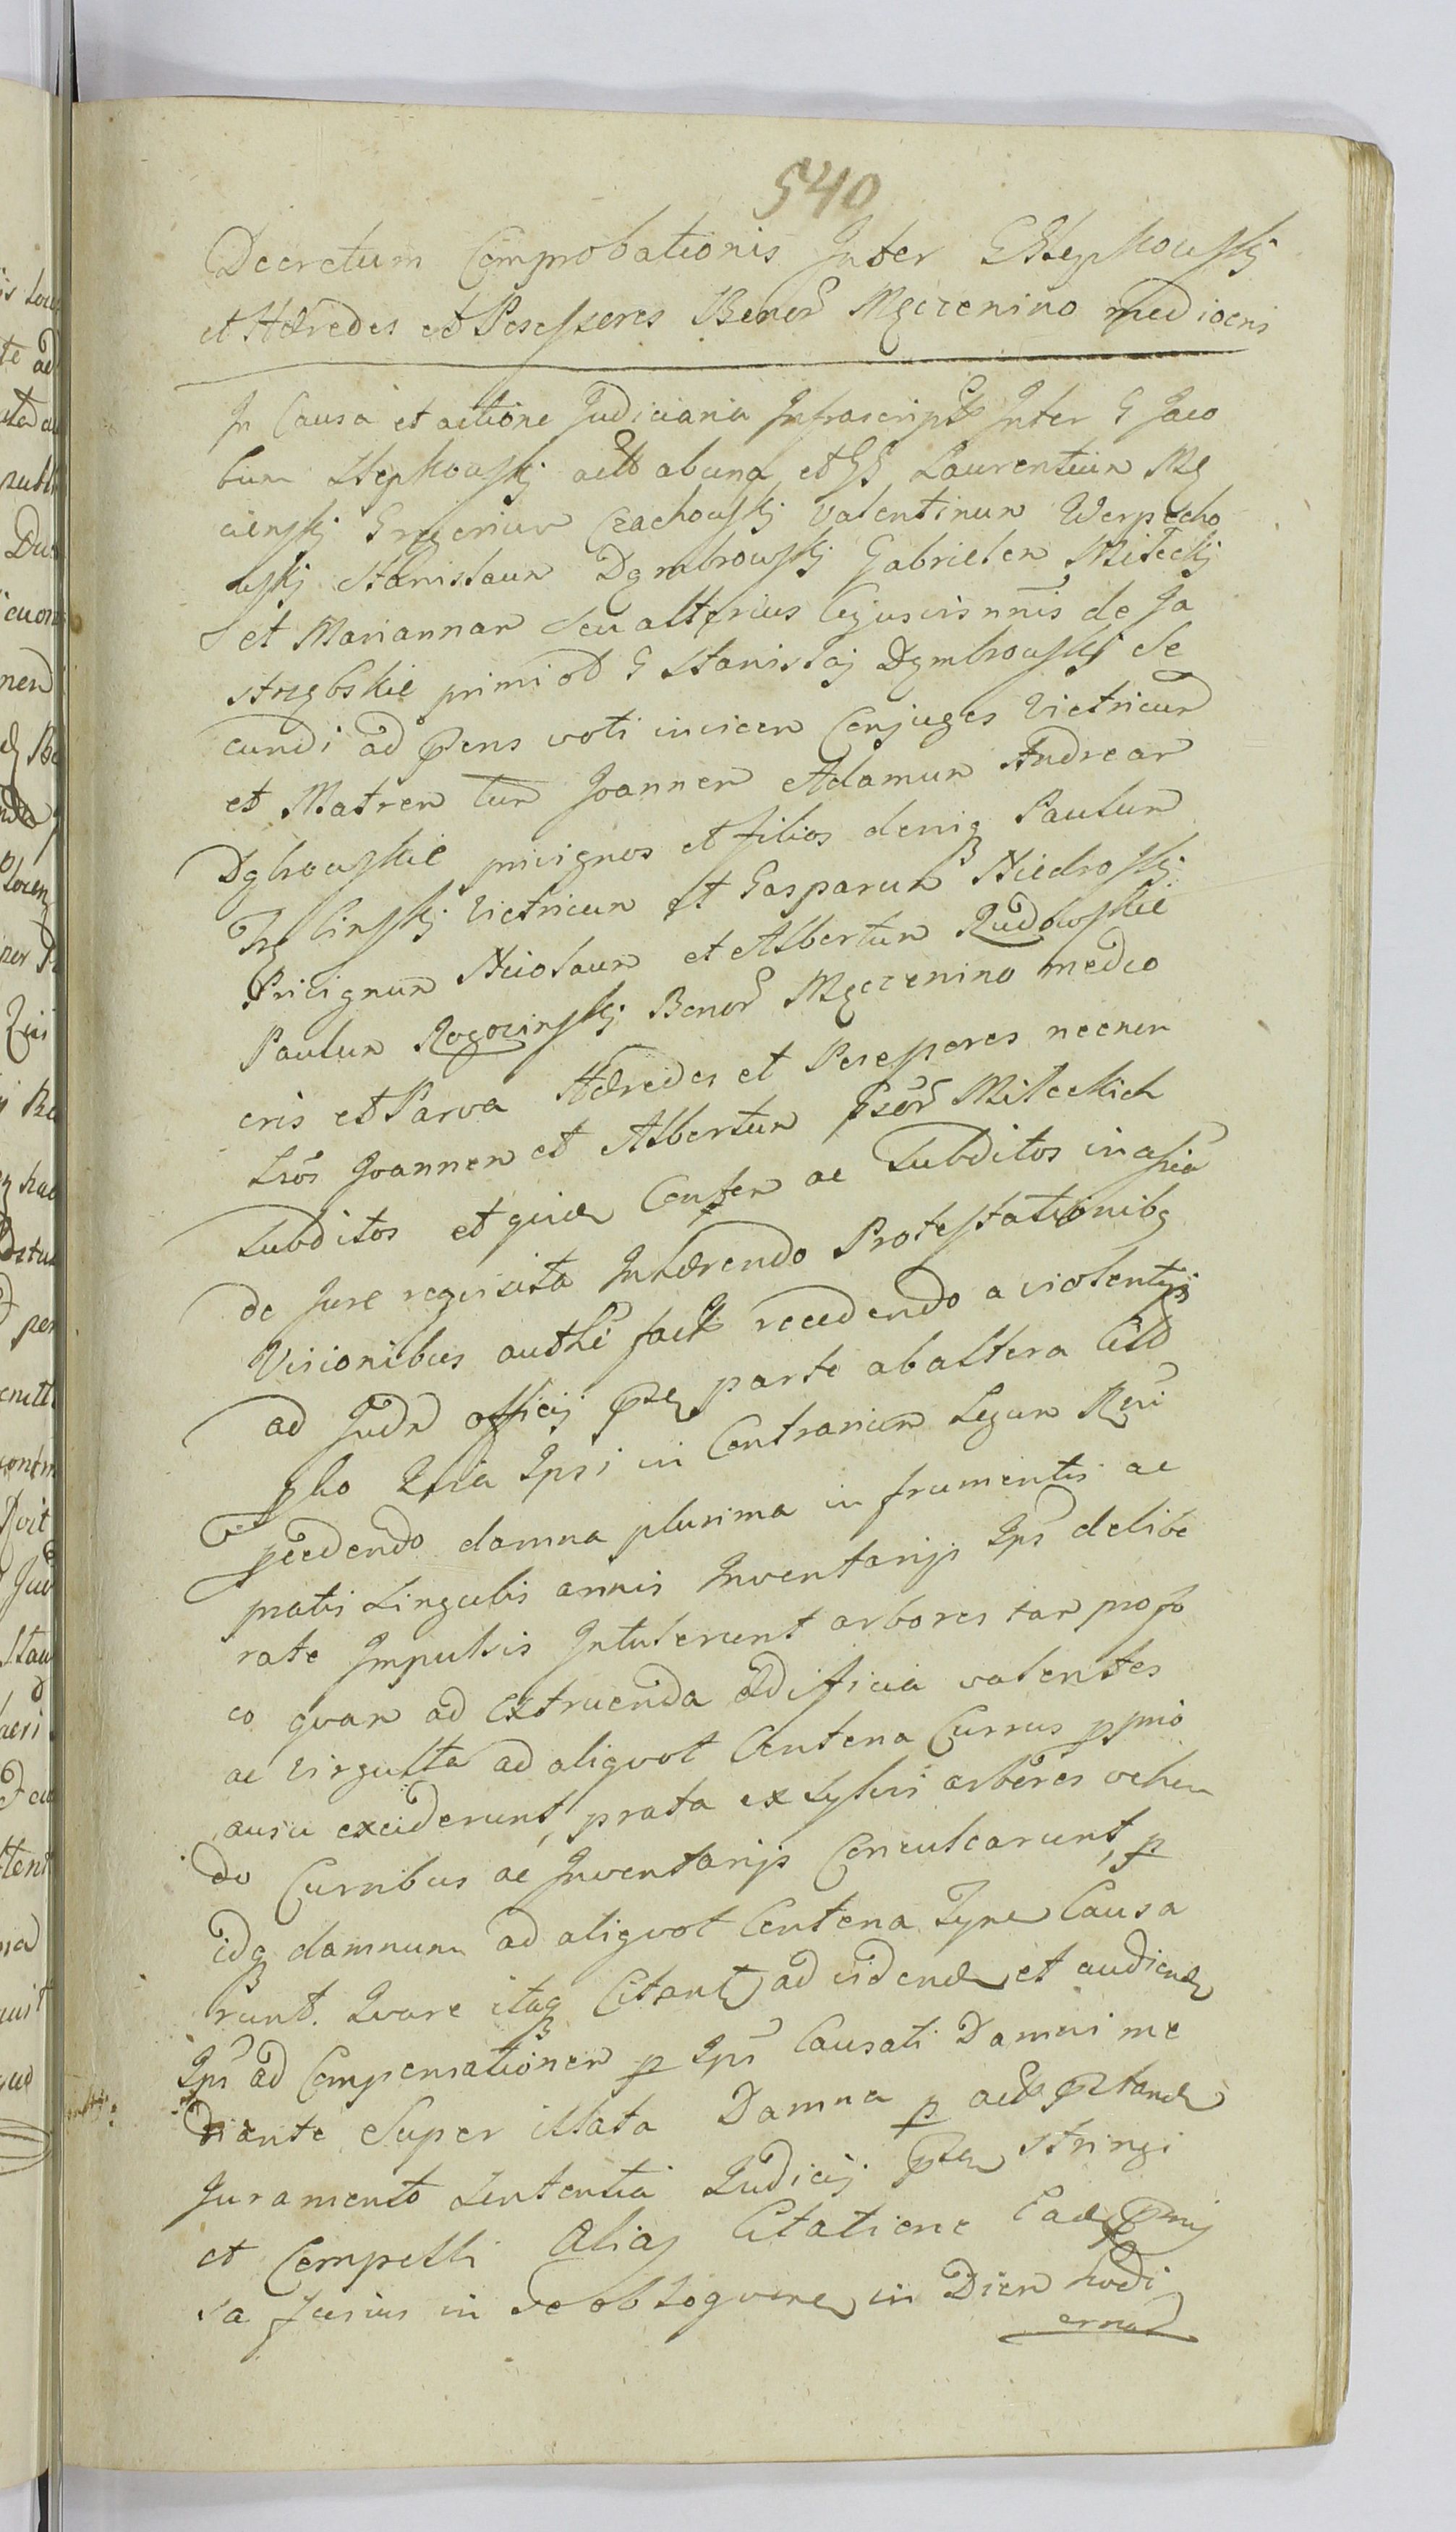 540
Decretum Comprobationis Inter G Stepkowskj
et Hæredes et Possessores Bonor Męczenino mediocris
In Causa et actione Judiciaria Infrascripta Inter G Jaco
bum Stepkowskj act ab una et GG Laurentium Mę
cienskj Gregorium Czachowskj Valentinum Wierpecho
wskj Stanislaum Dąmbrowskj Gabrielem Mileckj
et Mariannam seu alterius cujusvis nnis de Ja
strzębskie primi od G Stanislaj Dąmbrowskj se
cundi ad prens voti invicem Conjuges Victricum
et Matrem tum Joannem Adamum Andream
Dąbrowskie privignos et filios deniq Paulum
linskj Victricum et Gasparum Niedroskj
Privignum Nicolaum et Albertum Rudowskie
Paulum Rogozinskj Bonor Męczenino medio
cris et Parva Hæredes et Possessores necnon
Lros Joannem et Albertum Gsor Mileckich
Subditos et quidem ac Subditos in assia
de Jure requisita Inhærendo Protestationibq
Visionibus authe fact recedendo a violentijs
ad Judm officij pte parte ab altera Citd
pho Quia Ipsi in Contrarium Legum Rni
pcedendo damna plurima in frumentis ac
pratis singulis annis Inventarijs Ips delibe
rate Impulsis Intulerunt arbores tam pro fo
co quam ad extruenda ædificia valentes
ac virgulta ad aliquot Centena Currus pprio
ausu exciderunt, prata ex sylvis arbores vehen
do Curribus ac Inventarijs Conculcarunt, p
idq damnum ad aliquot Centena Tyne Causa
runt. Quare itaq Citant ad videnđ et audiend
Ips ad Compensationem p Ips Causati Damni me
diante Super illata Damna p act pstand
Juramento Sententia Judicij pte stringi
et Compelli Aliaq Citatione Ead
sa fusius in se obloquone in Diem hodi
ernam